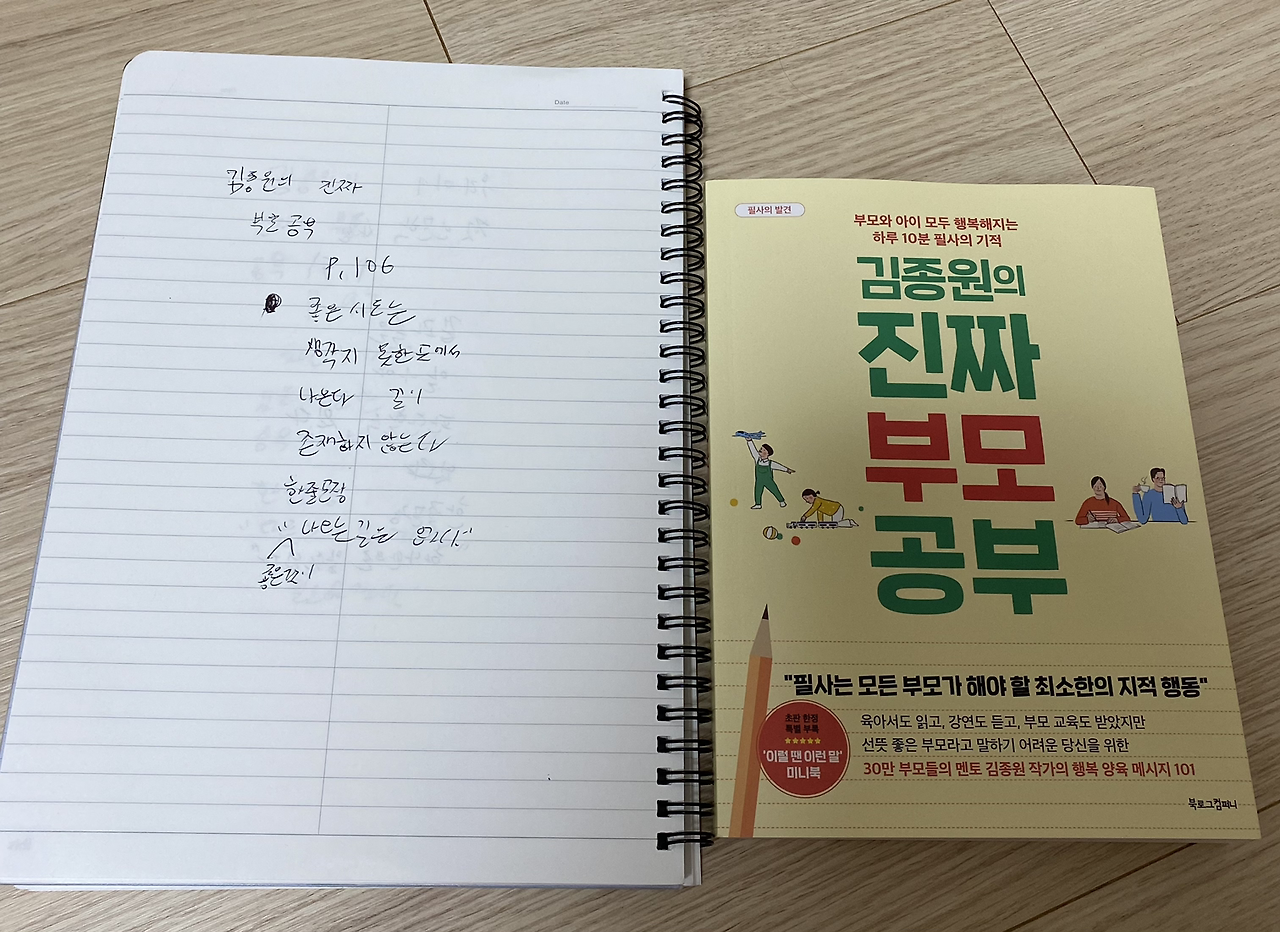 Date
김종원의 진짜
부모 공부
P. 106
좋은 시도는
생각지 못한 곳에서
나온다 길이
존재하지 않는다
한줄문장
"나만는 길은 없다"
좋은
필사의 발견
부모와 아이 모두 행복해지는
하루 10분 필사의 기적
김종원의
진짜
부모
공부
"필사는 모든 부모가 해야 할 최소한의 지적 행동"
초판 한정
특별 부록
★★★★★
'이럴 땐 이런 말'
미니북
육아서도 읽고, 강연도 듣고, 부모 교육도 받았지만
선뜻 좋은 부모라고 말하기 어려운 당신을 위한
30만 부모들의 멘토 김종원 작가의 행복 양육 메시지 101
북로그컴퍼니